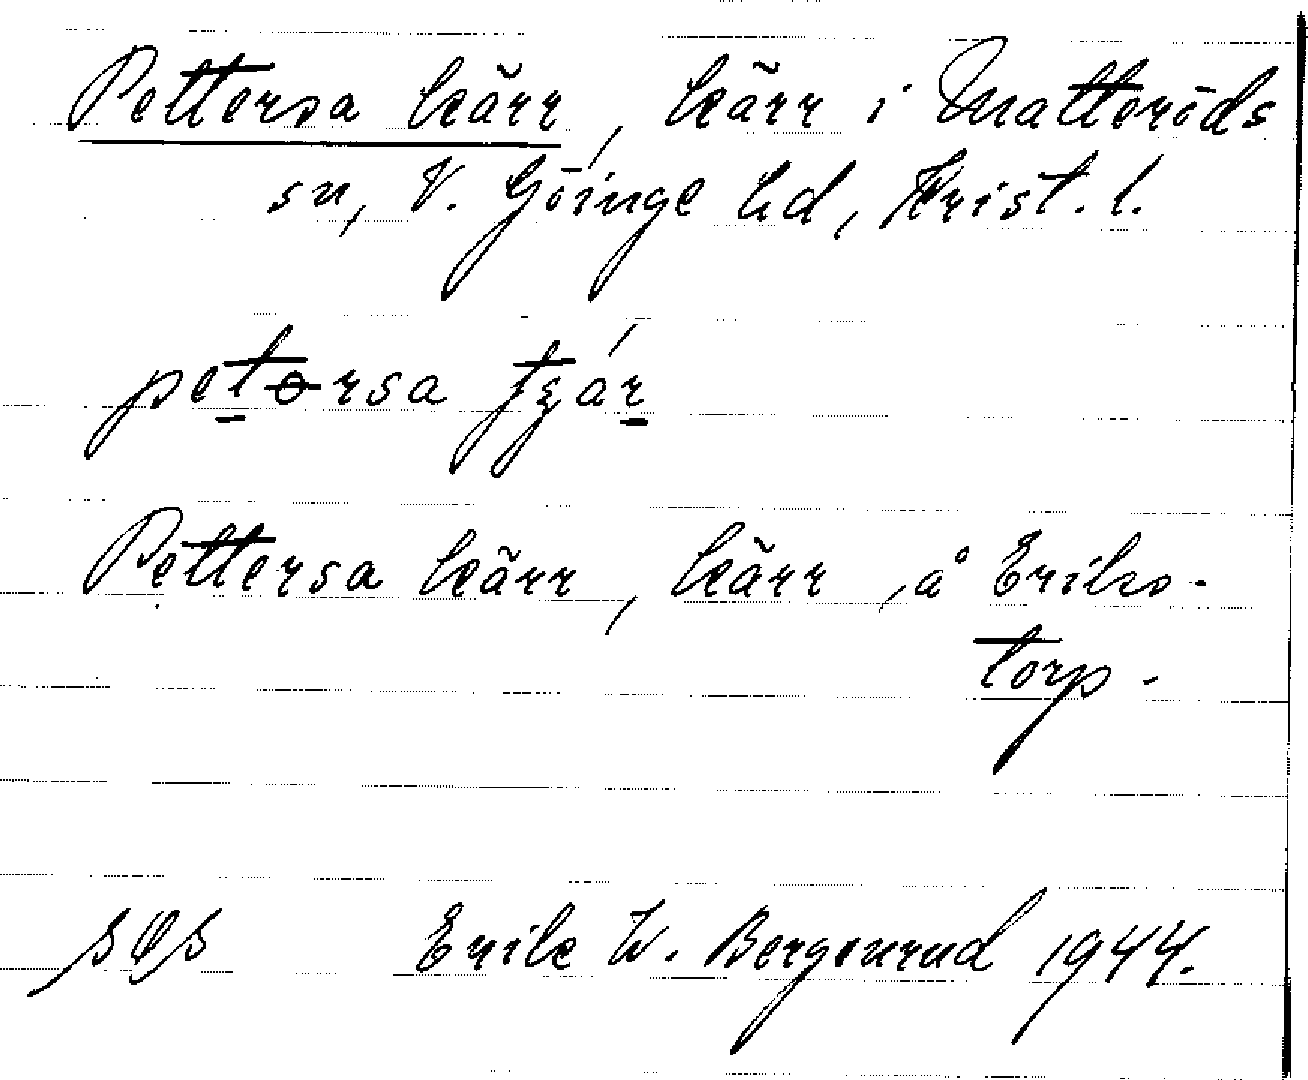 Pettersa kärr, kärr i Matteröds
sn, V. Göinge hd, Krist. l.
petersa
Pettersa kärr, kärr, å Eriks-
torp.
Erik W. Bergenrud 1944.